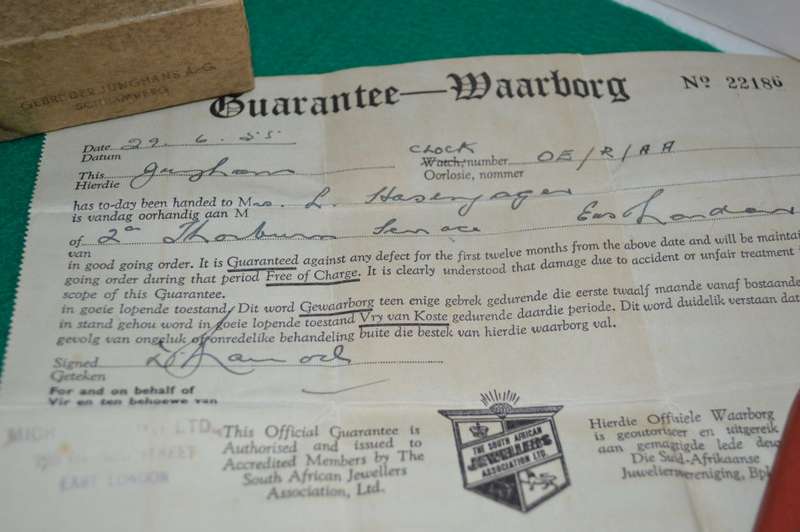 GEBRÜDER JUNGHANS A.-G.
SCHRAMBERG
Guarantee—Waarborg
No 22186
Date 29. 6. 55
Datum
This Junghans
Hierdie
CLOCK
Watch, number OE/R/AA
Oorlosie, nommer
has to-day been handed to Mrs. L. Hasenjager
is vandag oorhandig aan M
of 2a Thorburn Terrace East London
van
in good going order. It is Guaranteed against any defect for the first twelve months from the above date and will be maintai
going order during that period Free of Charge. It is clearly understood that damage due to accident or unfair treatment
scope of this Guarantee.
in goeie lopende toestand. Dit word Gewaarborg teen enige gebrek gedurende die eerste twaalf maande vanaf bostaande
in stand gehou word in goeie lopende toestand Vry van Koste gedurende daardie periode. Dit word duidelik verstaan dat
gevolg van ongeluk of onredelike behandeling buite die bestek van hierdie waarborg val.
Signed
Geteken
For and on behalf of
Vir en ten behoewe van
LTD.
STREET
EAST LONDON
This Official Guarantee is
Authorised and issued to
Accredited Members by The
South African Jewellers
Association, Ltd.
THE SOUTH AFRICAN
JEWELLERS
ASSOCIATION LTD.
Hierdie Offisiele Waarborg
is geoutoriseer en uitgereik
aan gemagtigde lede deur
Die Suid-Afrikaanse
Juweliersvereniging, Bpk